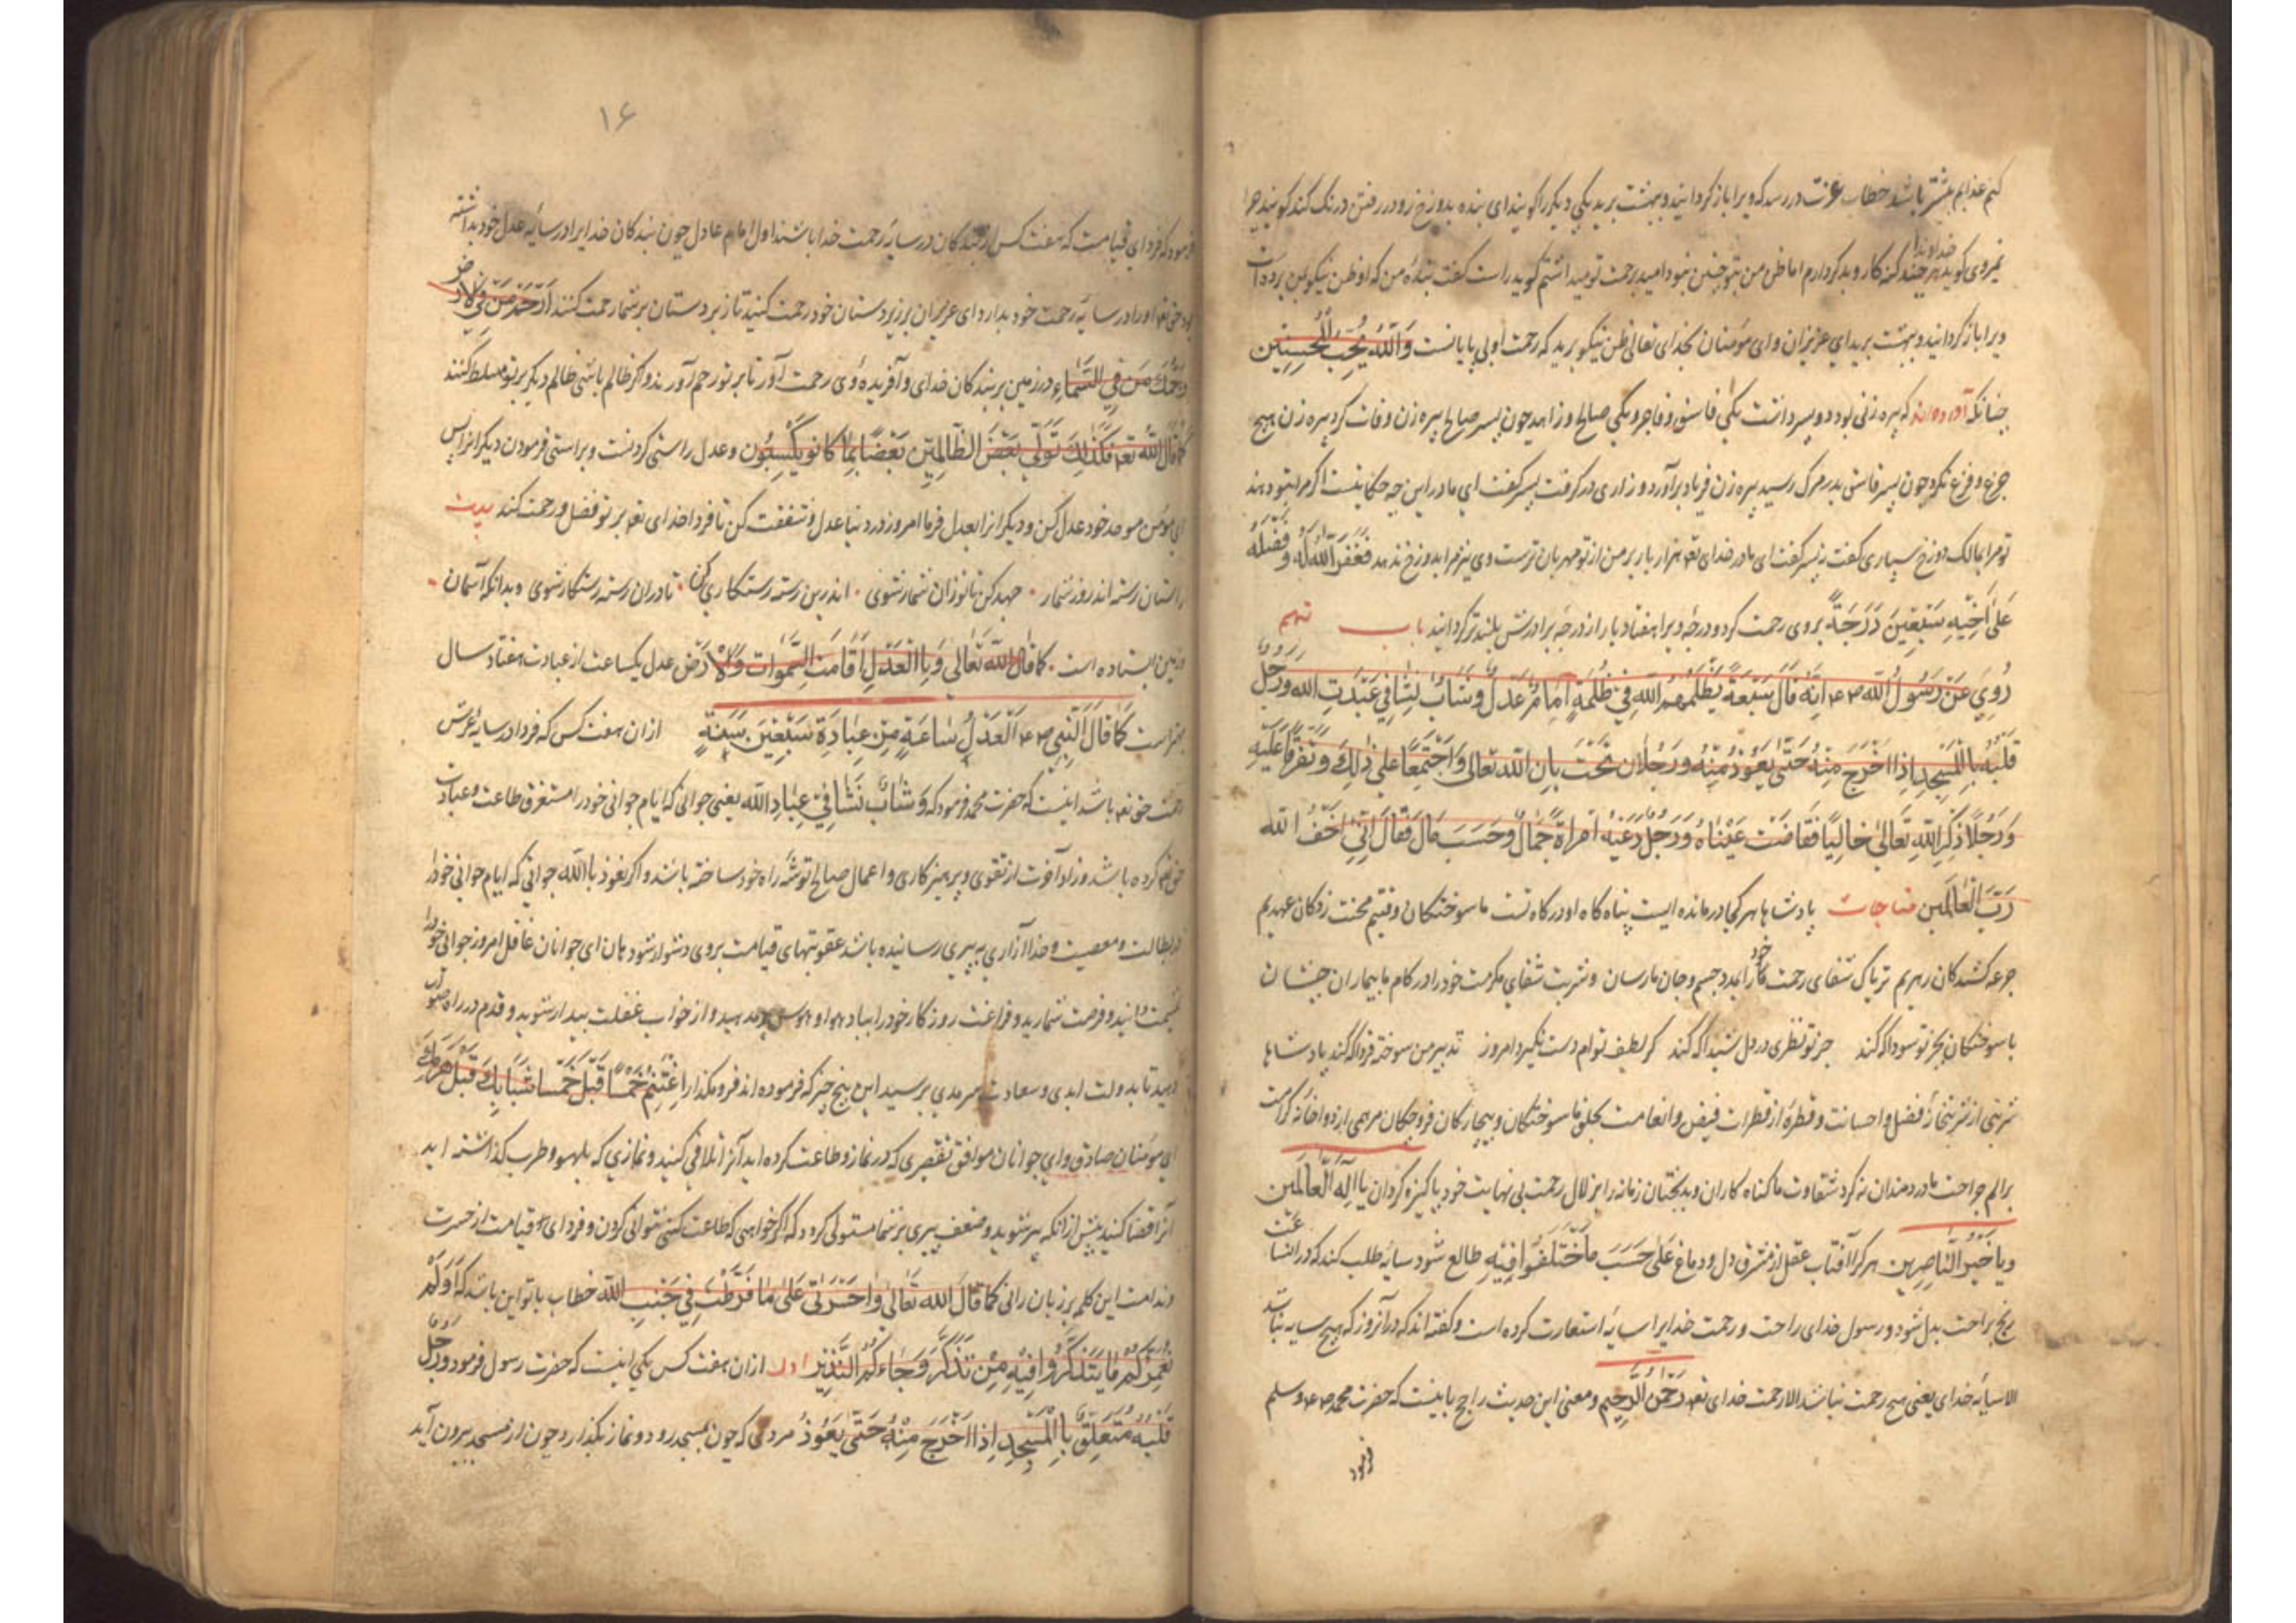 کنم عذابم بیشتر باشد خطاب عزت دررسد که ویرا باز کردانید و ببهشت برید یکی دیکر را کویند ای بنده بدوزخ رو در رفتن درنک کند کویند چرا
نمیروی کوید خداوندا هر چند کنه کار و بد کردارم اما ظن من بتو چنین نبود امید برحمت تو میداشتم کوید راست کفت بنده من که او ظن نیکو بمن برده است
ویرا باز کردانید و ببهشت برید ای عزیزان و ای مؤمنان بخدای تعالی ظن نیکو برید که رحمت او بی پایانست وَاللّٰهُ یُحِبُّ الْمُحسِنِین
چنانکه آورده اند که پیره زنی بود دو پسر داشت یکی فاسق و فاجر و یکی صالح و زاهد چون پسر صالح پیره زن وفات کرد پیره زن هیچ
جزع و فزع نکرد چون پسر فاسق بدر مرک رسید پیره زن فریاد برآورد و زاری در کرفت پسر کفت ای مادر این چه حکایتست اکر مرا بتو دهند
تو مرا بمالک دوزخ سپاری کفت نی پسر کفت ای مادر خدای تعه هزار بار بر من از تو مهربان ترست وی نیز مرا بدوزخ ندهد فَغَفَرَ اللّٰهُ لَهُ وَفَضَّلَهُ
عَلٰی اَخِیْهِ سَبْعِیْنَ دَرَجَةً بروی رحمت کرد و درجه ویرا هفتاد بار از درجه برادرش بلندتر کردانید باب نهم
رُوِیَ عَنْ رَسُولُ اللّٰه صعم اِنَّهُ قَالَ سَبْعَةٌ یَظُلَّهُمُ اللّٰهِ فِی ظُلْمَةٍ اِمَامٌ عَدْلٌ وَشَابٌ نِشَا فِی عَبْدَتِ اللّٰه وَرَجُلٌ
قَلْبُهُ بِالْمَسْجِدِ اِذَا اخْرَجَ مِنْهُ حَتّٰی یَعُوْذُ مِنْهُ وَرَجُلَانِ تَحْتَ بِانِ اللّٰه تَعَالٰی وَاجْتَمِعًا عَلٰی ذٰلِكَ وَتَفَرَّقًا عَلَیْهِ
وَرَجُلًا ذِكْرِ اللّٰهِ تَعَالٰی خَالِیًا فَفَاضَتْ عَیْنَاهُ وَرَجُلٌ دَعَیْهُ امْرَاةٌ جَمَالٌ وَحَسَبَ مَالَ فَقَالَ اِنِّی اَخَفُ اللّٰه
رَبَّ الْعَالَمِین مناجات پادشاها هر کجا درمانده ایست پناه کاه او درکاه تست ما سوختکان وقتیم محنت زدکان عهدیم
جرعه کشیدکان زهریم تریاک شفای رحمت خود را بدرد جسم و جان ما رسان و شربت شفای مکرمت خود را در کام ما بیماران چشان
با سوختکان بجز تو سودا که کند جز تو نظری در دل شیدا که کند کر لطیف توام دست نکیرد امروز تدبیر من سوخته فردا که کند پادشاها
شربتی از شربتخانهٔ فضل و احسانت و قطرهٔ از قطرات فیض و انعامت بحلق ما سوختکان و بیچارکان فرو چکان مرهمی از دواخانهٔ کرامت
برالم جراحت ما دردمندان نه کرد شقاوت ما کناه کاران و بدبختان زمانه را بزلال رحمت بی نهایت خود پاکیزه کردان یا اِلٰهَ الْعَالَمِین
ویا خَیْرُ النَّاصِرِین هر کرا آفتاب عقل از مشرق دل و دماغ عَلٰی حَسَبَ مَا خْتَلَفُوا فِیْهِ طالع شود سایه طلب کند که در انسا عت
رنج براحت بدل شود و رسول خدای راحت و رحمت خدایرا سایه استعارت کرده است و کفته اند که در آنروز که هیچ سایه نباشد
الا سایهٔ خدای یعنی هیچ رحمت نباشد الا رحمت خدای تعه رَحْمٰنُ الرَّحِیم و معنی این حدیث راجح بابیست که حضرت محمد صعم وسلم
فرمود
۱۶
فرمود که فردای قیامت که هفت کس از بندکان در سایهٔ رحمت خدا باشند اول امام عادل چون بندکان خدایرا در سایهٔ عدل خود بداشته
بود حق تعه او را در سایهٔ رحمت خود بدارد ای عزیزان بر زیردستان خود رحمت کنید تا زبردستان بر شما رحمت کنند اَرْحَمْ مَنْ فِی الْاَرْضِ
یَرْحَمْكَ مَنْ فِی السَّمَاءِ در زمین بر بندکان خدای و آفریده وی رحمت آور تا بر تو رحم آورند و اکر ظالم باشی ظالم دیکر بر تو مسلط کنند
کَمَا قَالَ اللّٰهُ تعه فَكَذٰلِكَ نُوَلِّی بَعْضَ الظَّالِمِیْنَ بَعْضًا بِمَا كَانُو یَكْسِبُون و عدل راستی کردنست و براستی فرمودن دیکرانرا پس
ای مؤمن موحد خود عدل کن و دیکرانرا بعدل فرما امروز در دنیا عدل و شفقت کن تا فردا خدای تعه بر تو فضل و رحمت کند بیت
راستان رسته اند روز شمار جهد کن تا توزان شمار شوی اندرین رسته رستکاری کن تا دران رسته رستکار شوی و بدانکه آسمان
و زمین ایستاده است کما قَالَ اللّٰه تَعَالٰی وَبِاالْعَدْلِ اَقَامَتِ السَّمٰوَات وَالْاَرْضِ عدل یکساعت از عبادت هفتاد سال
بهتر است کَمَا قَالَ النَّبِی صعم اَلْعَدْلِ سَاعَةٍ مِنْ عِبَادَةِ سَبْعِیْنَ سَنَةٍ ازان هفت کس که فردا در سایهٔ عرش
رحمت حق تعه باشد اینست که حضرت محمد فرمود که وَشَابٌّ نَشَا فِیْ عِبَادِ اللّٰه یعنی جوانی که ایام جوانی خود را مستغرق طاعت و عبادت
حق تعه کرده باشد و زاد آخرت از تقوی و پرهیزکاری و اعمال صالح توشهٔ راه خود ساخته باشد و اکر نعوذ باالله جوانی که ایام جوانی خود را
در بطالت و معصیت و خدا آزاری به پیری رسانیده باشد عقوبتهای قیامت بروی دشوار شود هان ای جوانان غافل امروز جوانی خود را
غنیمت دانید و فرصت شمارید و فراغت روزکار خود را بباد هوا و هوس مدهید و از خواب غفلت بیدار شوید و قدم در راه صواب
نهید تا بدولت ابدی و سعادت سرمدی برسید این پنج چیز که فرموده اند فرو مکذارید اِغْتَنِمْ خَمْسًا قَبْلَ خَمْسٍ شَبَابِكَ قَبْلَ هَرَمِكَ
ای مؤمنان صادق و ای جوانان موافق تقصیری که در نماز و طاعت کرده اید آنرا تلافی کنید و نمازی که بلهو و طرب کذاشته اید
آنرا قضا کنید پیش ازانکه پیر شوید و ضعف پیری بر شما مستولی کردد که اکر خواهی که طاعت کنی نتوانی کردن و فردای قیامت از حسرت
و ندامت این کلمه بر زبان رانی کَمَا قَالَ اللّٰه تَعَالٰی وَاحَسْرَتٰی عَلٰی مَا فَرَّطْتُ فِیْ جَنْبِ اللّٰه خطاب با تو این باشد که اَوَلَمْ
نُعَمِّرْكُمْ مَا یَتَذَكَّرُوا فِیْهِ مِنْ تَذَكَّرَ وَجَاءَكُمُ النَّذِیْرُ اول ازان هفت کس یکی اینست که حضرت رسول فرمود وَرَجُلٌ
قَلْبُهُ مُتَعَلِّقٌ بِاالْمَسْجِدِ اِذَا اخْرَجَ مِنْهُ حَتّٰی یَعُوْذُ مردمی که چون بمسجد رود و نماز بکذارد و چون از مسجد بیرون آید